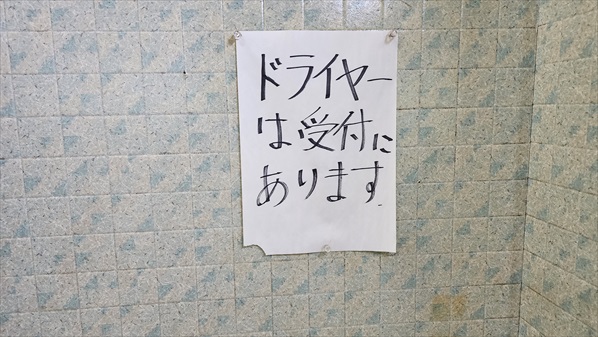 ドライヤー
は受付に
あります.